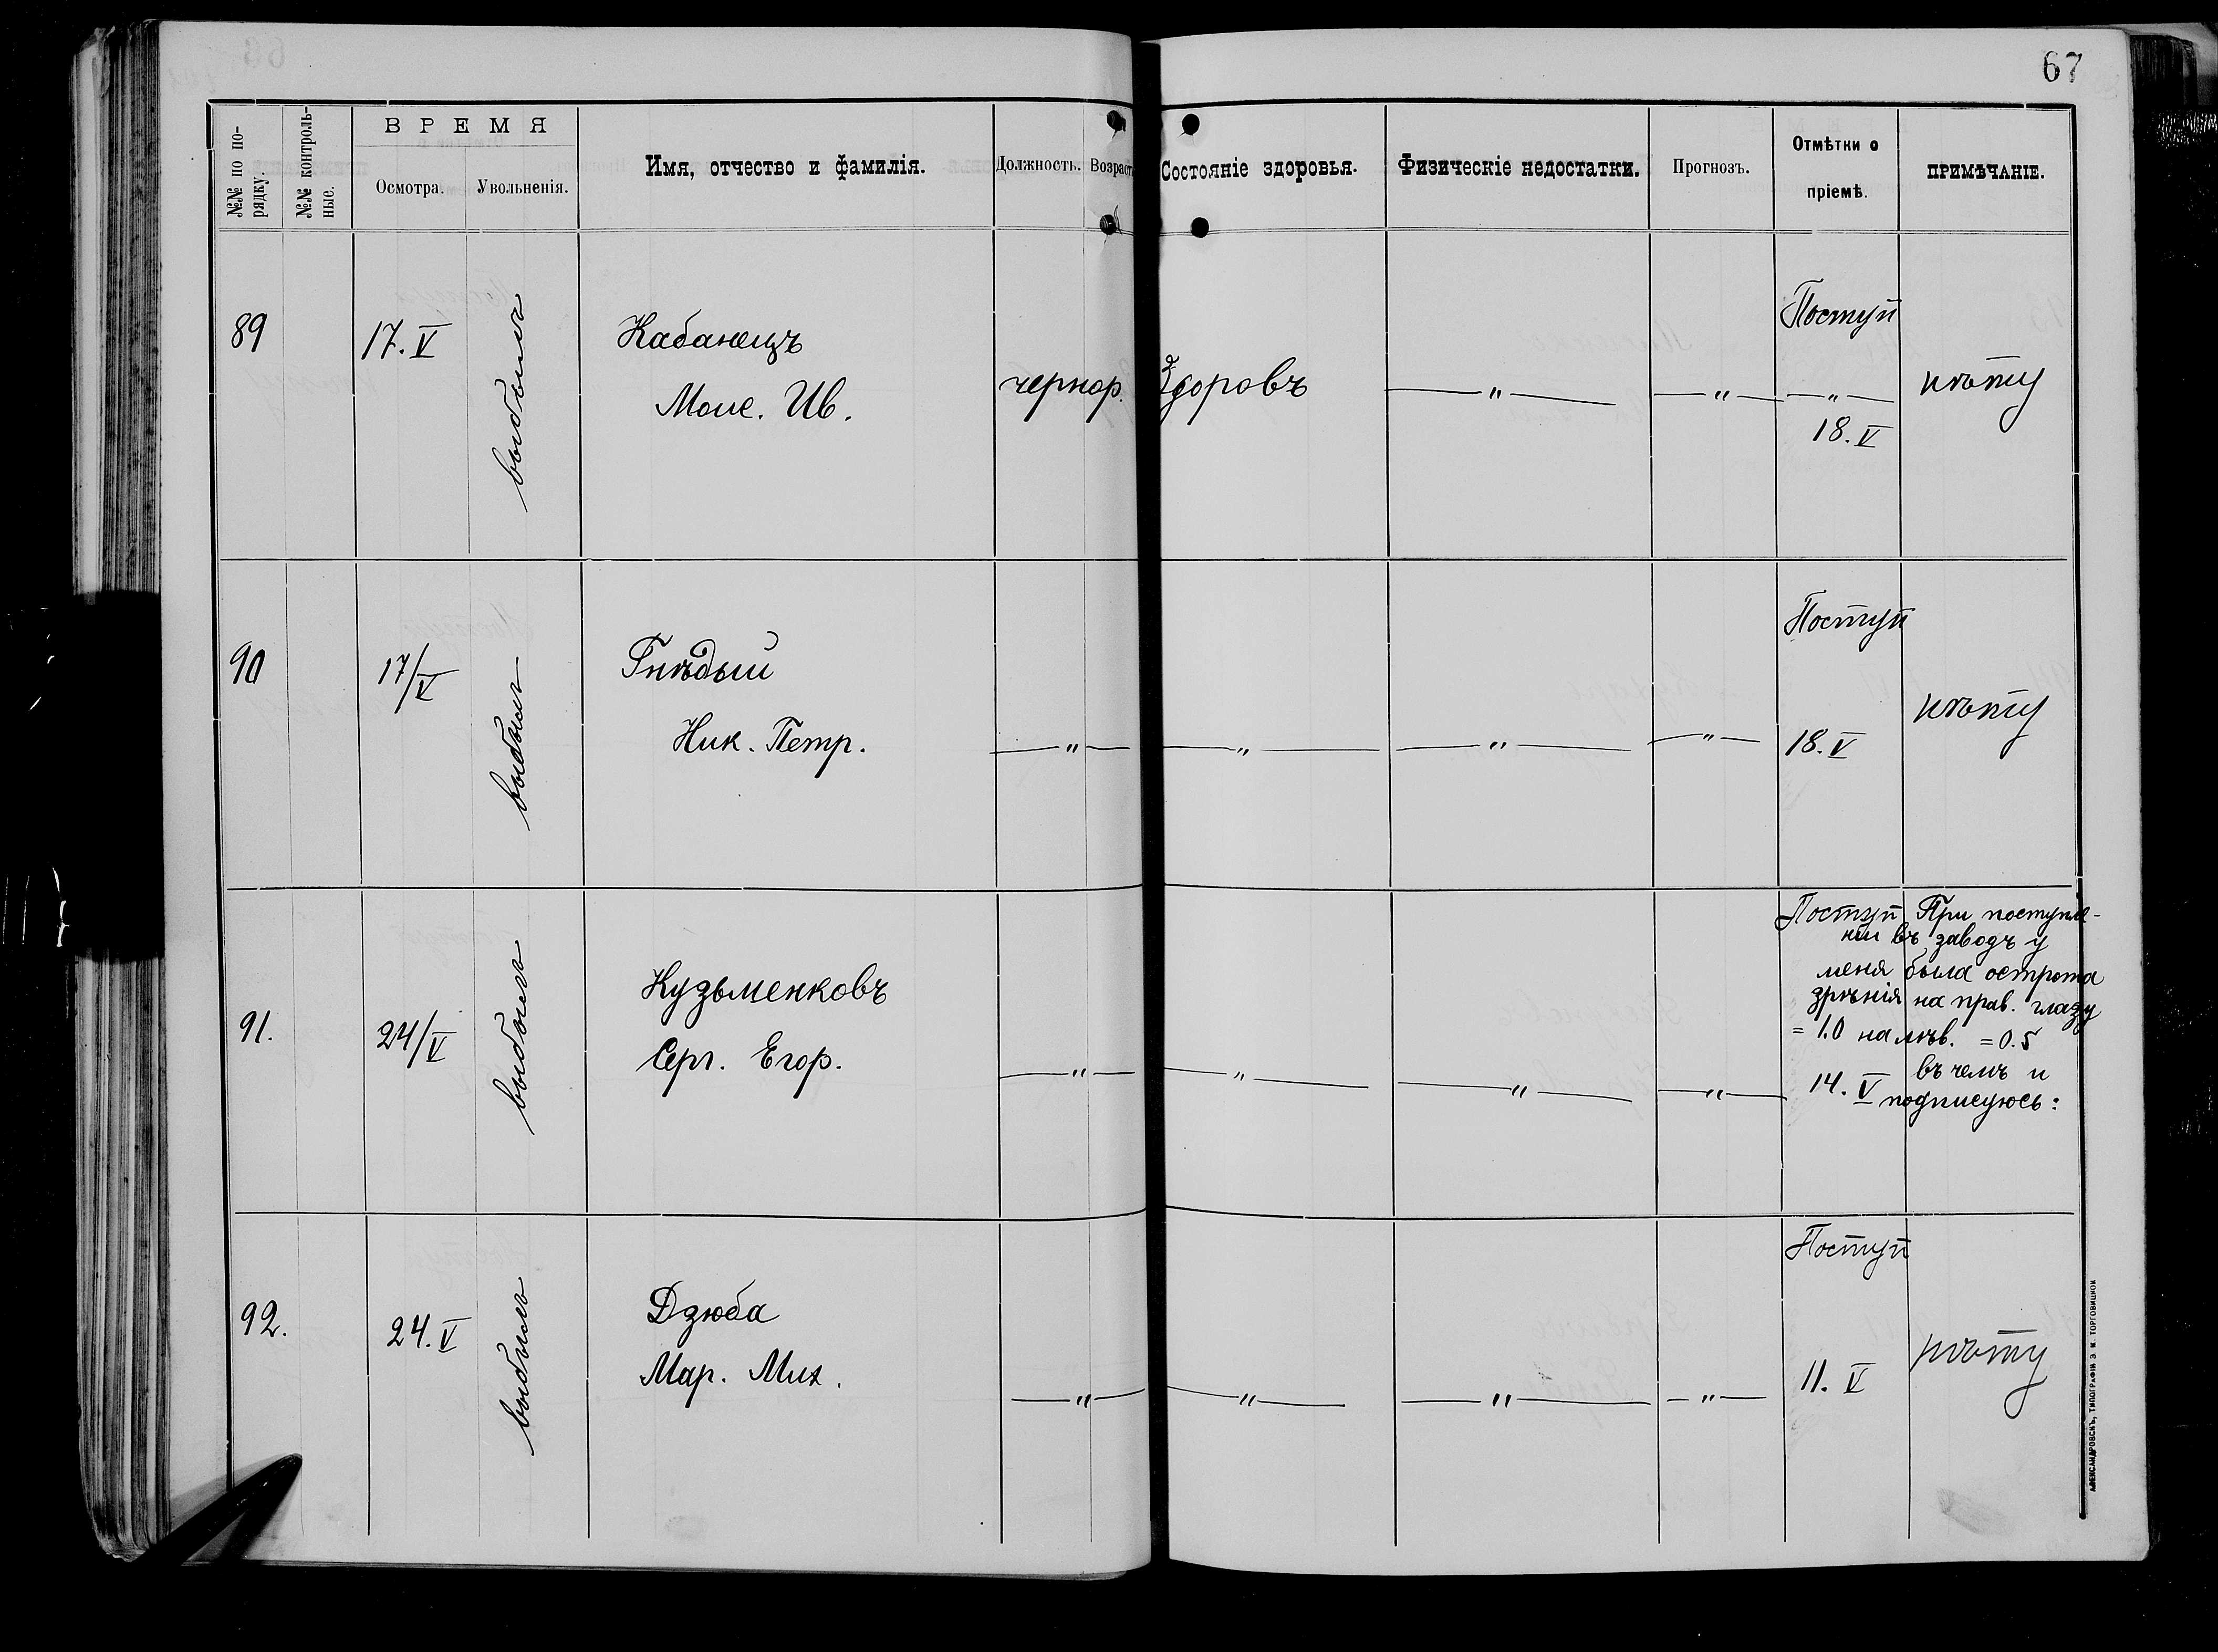 67
№№ по по-
рядку.
№№ контроль-
ные.
ВРЕМЯ
Осмотра.
Увольненія.
Имя, отчество и фамилія.
Должность.
Возрастъ
Состояніе здоровья.
Физическіе недостатки.
Прогнозъ.
Отмѣтки о
пріемѣ.
ПРИМѢЧАНІЕ.
89
17. V
выбылъ
Кабанецъ
Моис. Ив.
чернор.
Здоровъ
— " —
— " —
Поступ
— " —
18. V
нѣту
90
17/V
выбылъ
Гнѣдый
Ник. Петр.
— " —
— " —
— " —
— " —
Поступ
18. V
нѣту
91.
24/V
выбылъ
Кузьменковъ
Серг. Егор.
— " —
— " —
— " —
— " —
Поступ
14. V
При поступле-
ніи въ заводъ у
меня была острота
зрѣнія на прав. глазу
= 1.0 на лѣв. = 0.5
въ чемъ и
подписуюсь:
92.
24. V
выбылъ
Дзюба
Мар. Мих.
— " —
— " —
— " —
— " —
Поступ
11. V
нѣту
АЛЕКСАНДРОВСКЪ, ТИПОГРАФІЯ Э. И. ТОРГОВИЦКОЙ